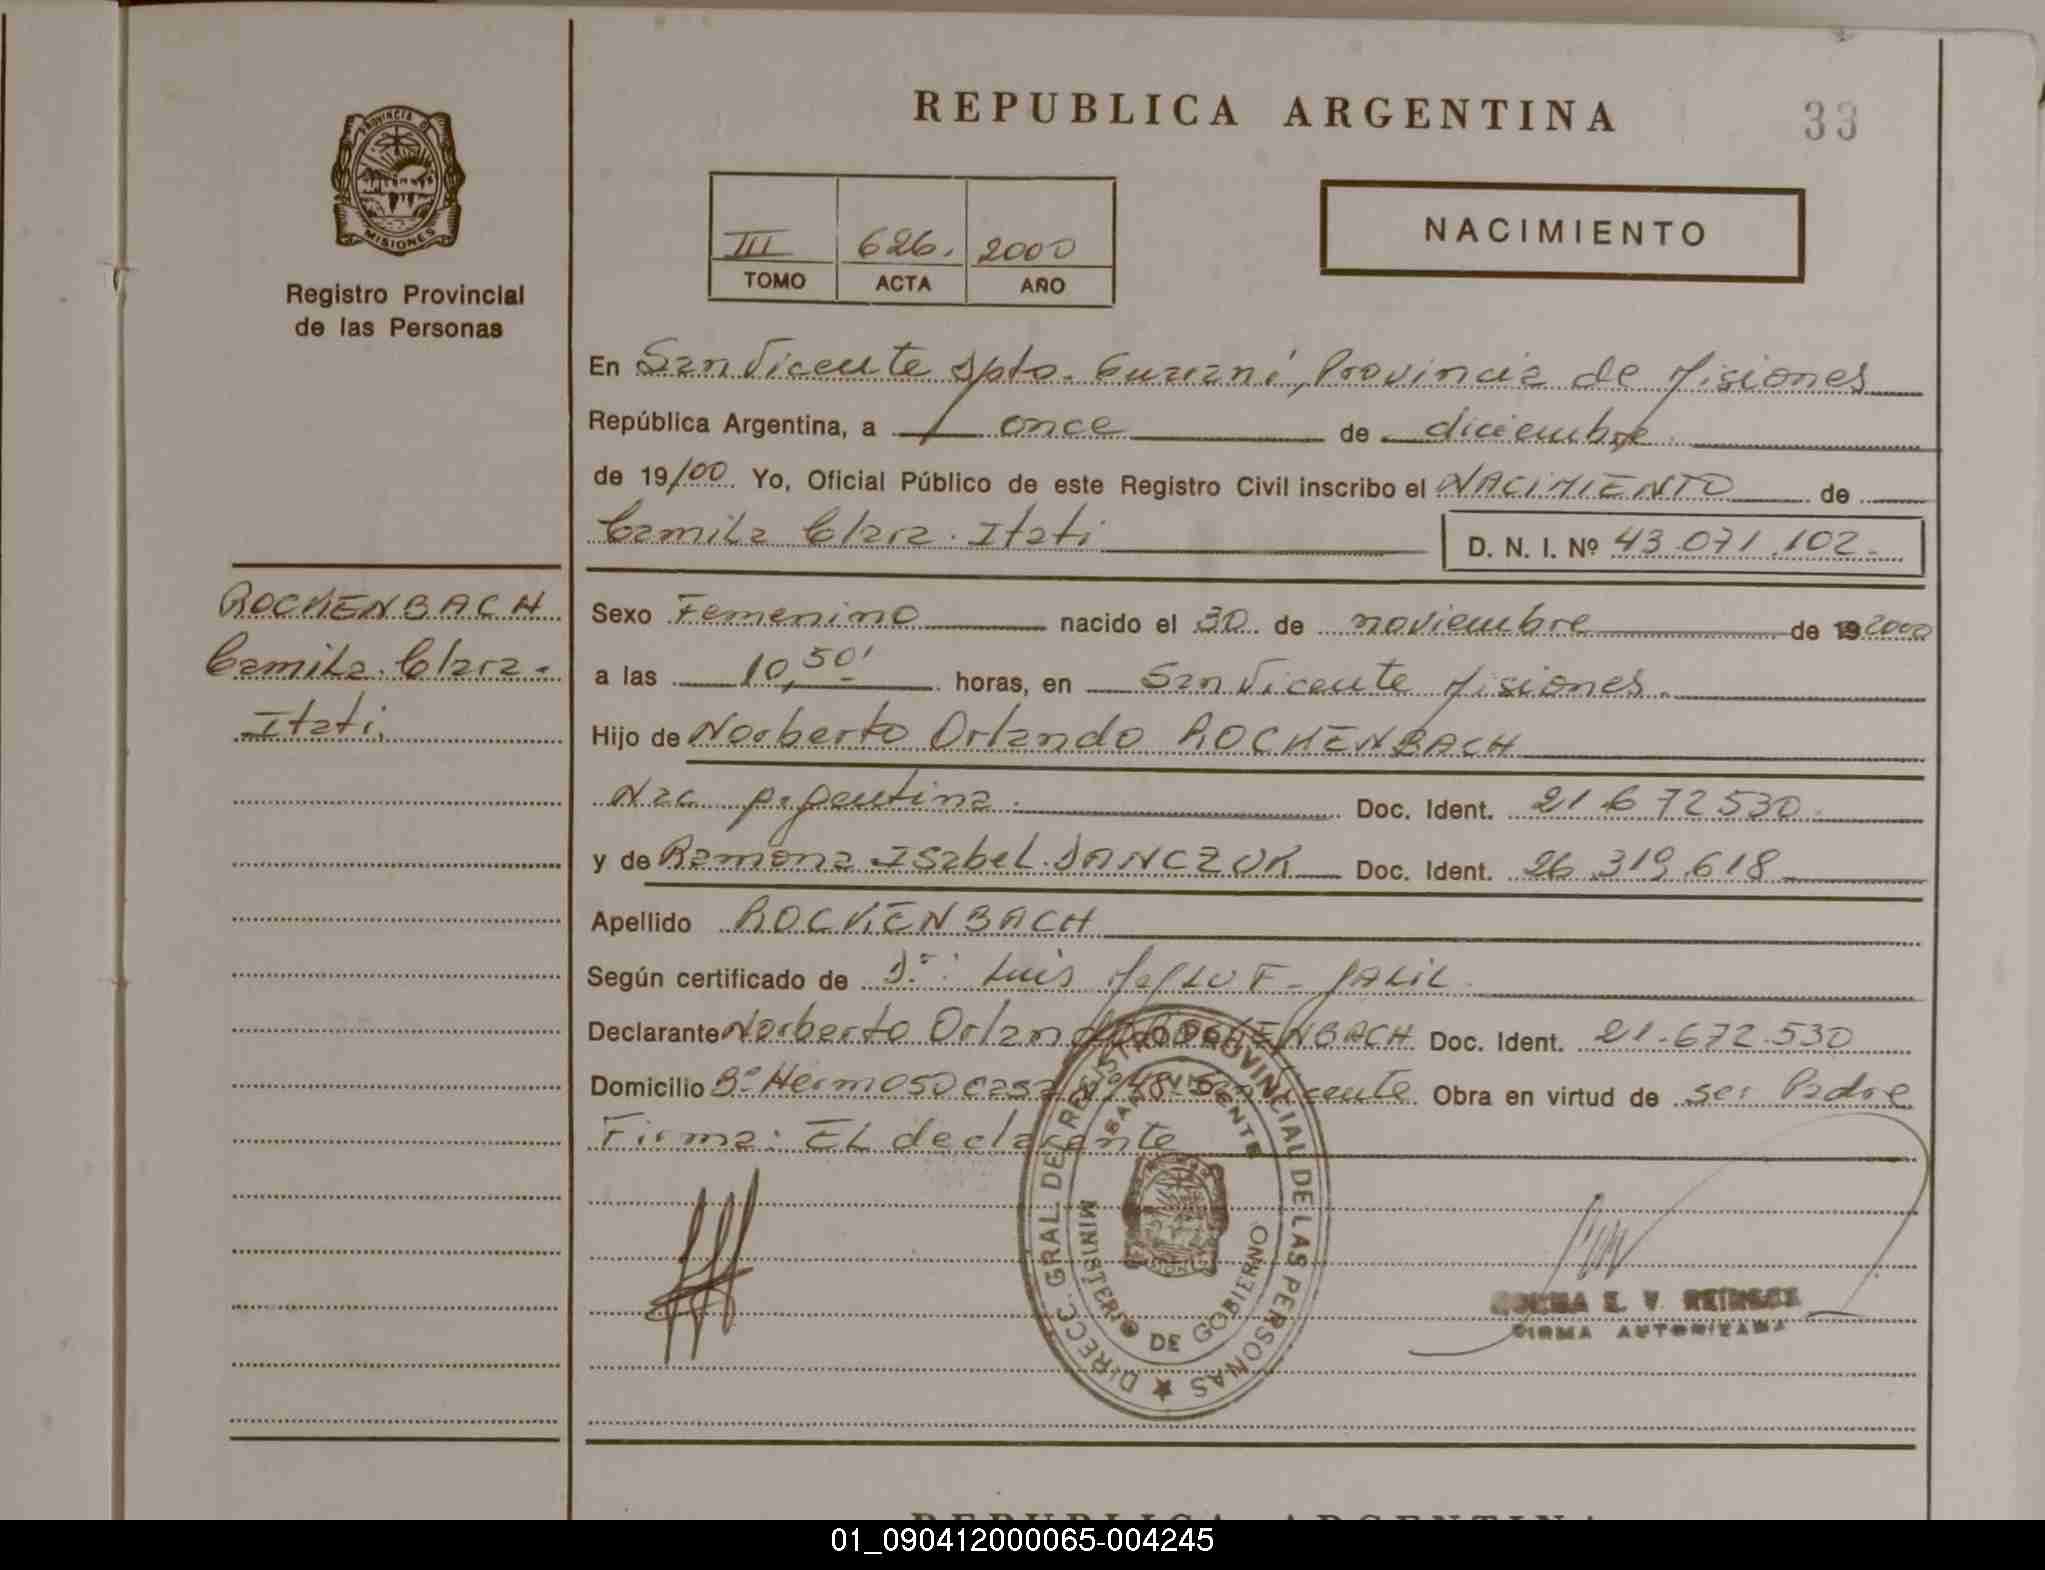 REPUBLICA ARGENTINA
33
PROVINCIA DE
MISIONES
Registro Provincial
de las Personas
III 626. 2000
TOMO ACTA AÑO
NACIMIENTO
En San Vicente Dpto. Guaraní, Provincia de Misiones
República Argentina, a once de diciembre
de 19/00 Yo, Oficial Público de este Registro Civil inscribo el NACIMIENTO de
Camila Clara Itati
D. N. I. Nº 43.071.102
ROCKENBACH
Camila Clara
Itati
Sexo Femenino nacido el 30 de noviembre de 19 2000
a las 10,50' horas, en San Vicente Misiones
Hijo de Norberto Orlando ROCKENBACH
Nac Argentina Doc. Ident. 21.672.530
y de Ramona Isabel DANCZUK Doc. Ident. 26.319.618
Apellido ROCKENBACH
Según certificado de Dr. Luis JALIL
Declarante Norberto Orlando ROCKENBACH Doc. Ident. 21.672.530
Domicilio Bº Hermoso casa Nº 48 San Vicente Obra en virtud de ser Padre
Firma: El declarante
DIRECC. GRAL. DEL REGISTRO PROVINCIAL DE LAS PERSONAS
SAN VICENTE
MINISTERIO DE GOBIERNO
E. V.
FIRMA AUTORIZADA
REPUBLICA ARGENTINA
01_090412000065-004245